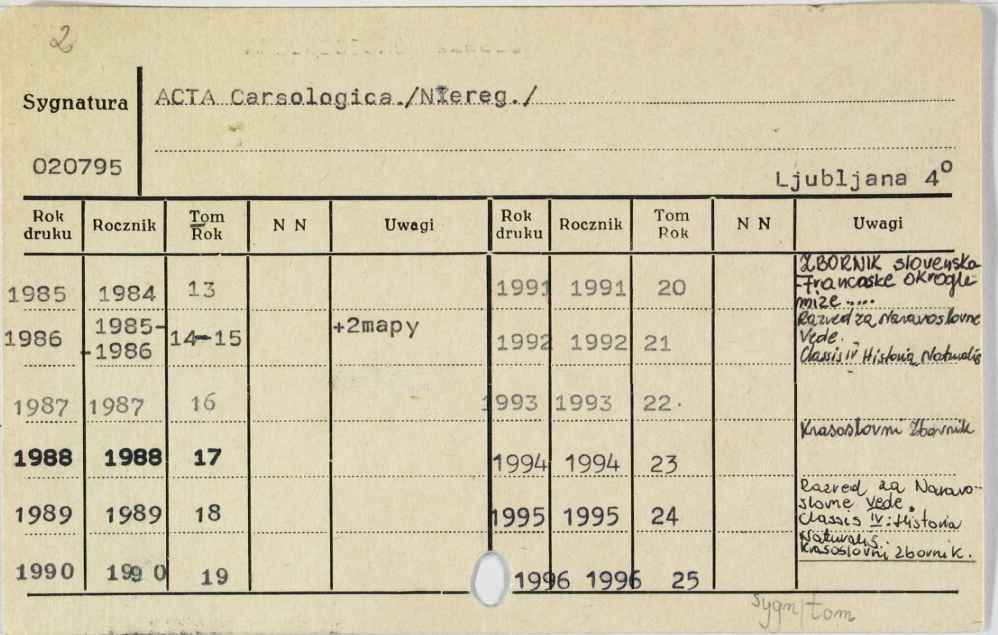 2
Sygnatura
ACTA Carsologica./Niereg./
020795
Ljubljana 4º
Rok druku Rocznik Tom Rok N N Uwagi Rok druku Rocznik Tom Rok N N Uwagi
1985 1984 13 1991 1991 20 ZBORNIK slovenska
-francoske okrogle
mize.....
1986 1985-
-1986 14-15 +2mapy 1992 1992 21 Razred za Naravoslovne
Vede.
Classis IV Historia Naturalis
1987 1987 16 1993 1993 22.
Krasoslovni Zbornik
1988 1988 17 1994 1994 23
1989 1989 18 1995 1995 24 Razred za Naravo-
slovne vede.
Classis IV: Historia
Naturalis.
Krasoslovni zbornik.
1990 1990 19 1996 1996 25
sygn/tom